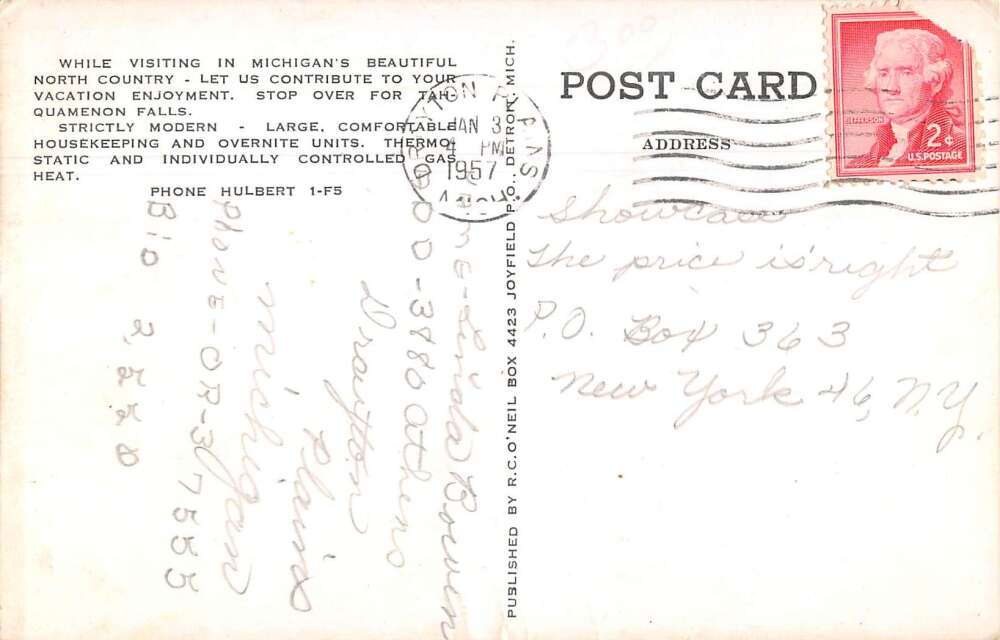 WHILE VISITING IN MICHIGAN'S BEAUTIFUL
NORTH COUNTRY - LET US CONTRIBUTE TO YOUR
VACATION ENJOYMENT. STOP OVER FOR TAH-
QUAMENON FALLS.
STRICTLY MODERN - LARGE, COMFORTABLE
HOUSEKEEPING AND OVERNITE UNITS. THERMO-
STATIC AND INDIVIDUALLY CONTROLLED GAS
HEAT.
PHONE HULBERT 1-F5
Linda Bowen
3880 Athens
Drayton
Plains
Michigan
PHONE-OR-3 7555
Bid 2,550
PUBLISHED BY R.C. O'NEIL BOX 4423 JOYFIELD P.O., DETROIT, MICH.
JAN 3
4 PM
1957
POST CARD
ADDRESS
JEFFERSON
2¢
U.S. POSTAGE
Showcase
The price is right
P.O. Box 363
New York 46, N.Y.